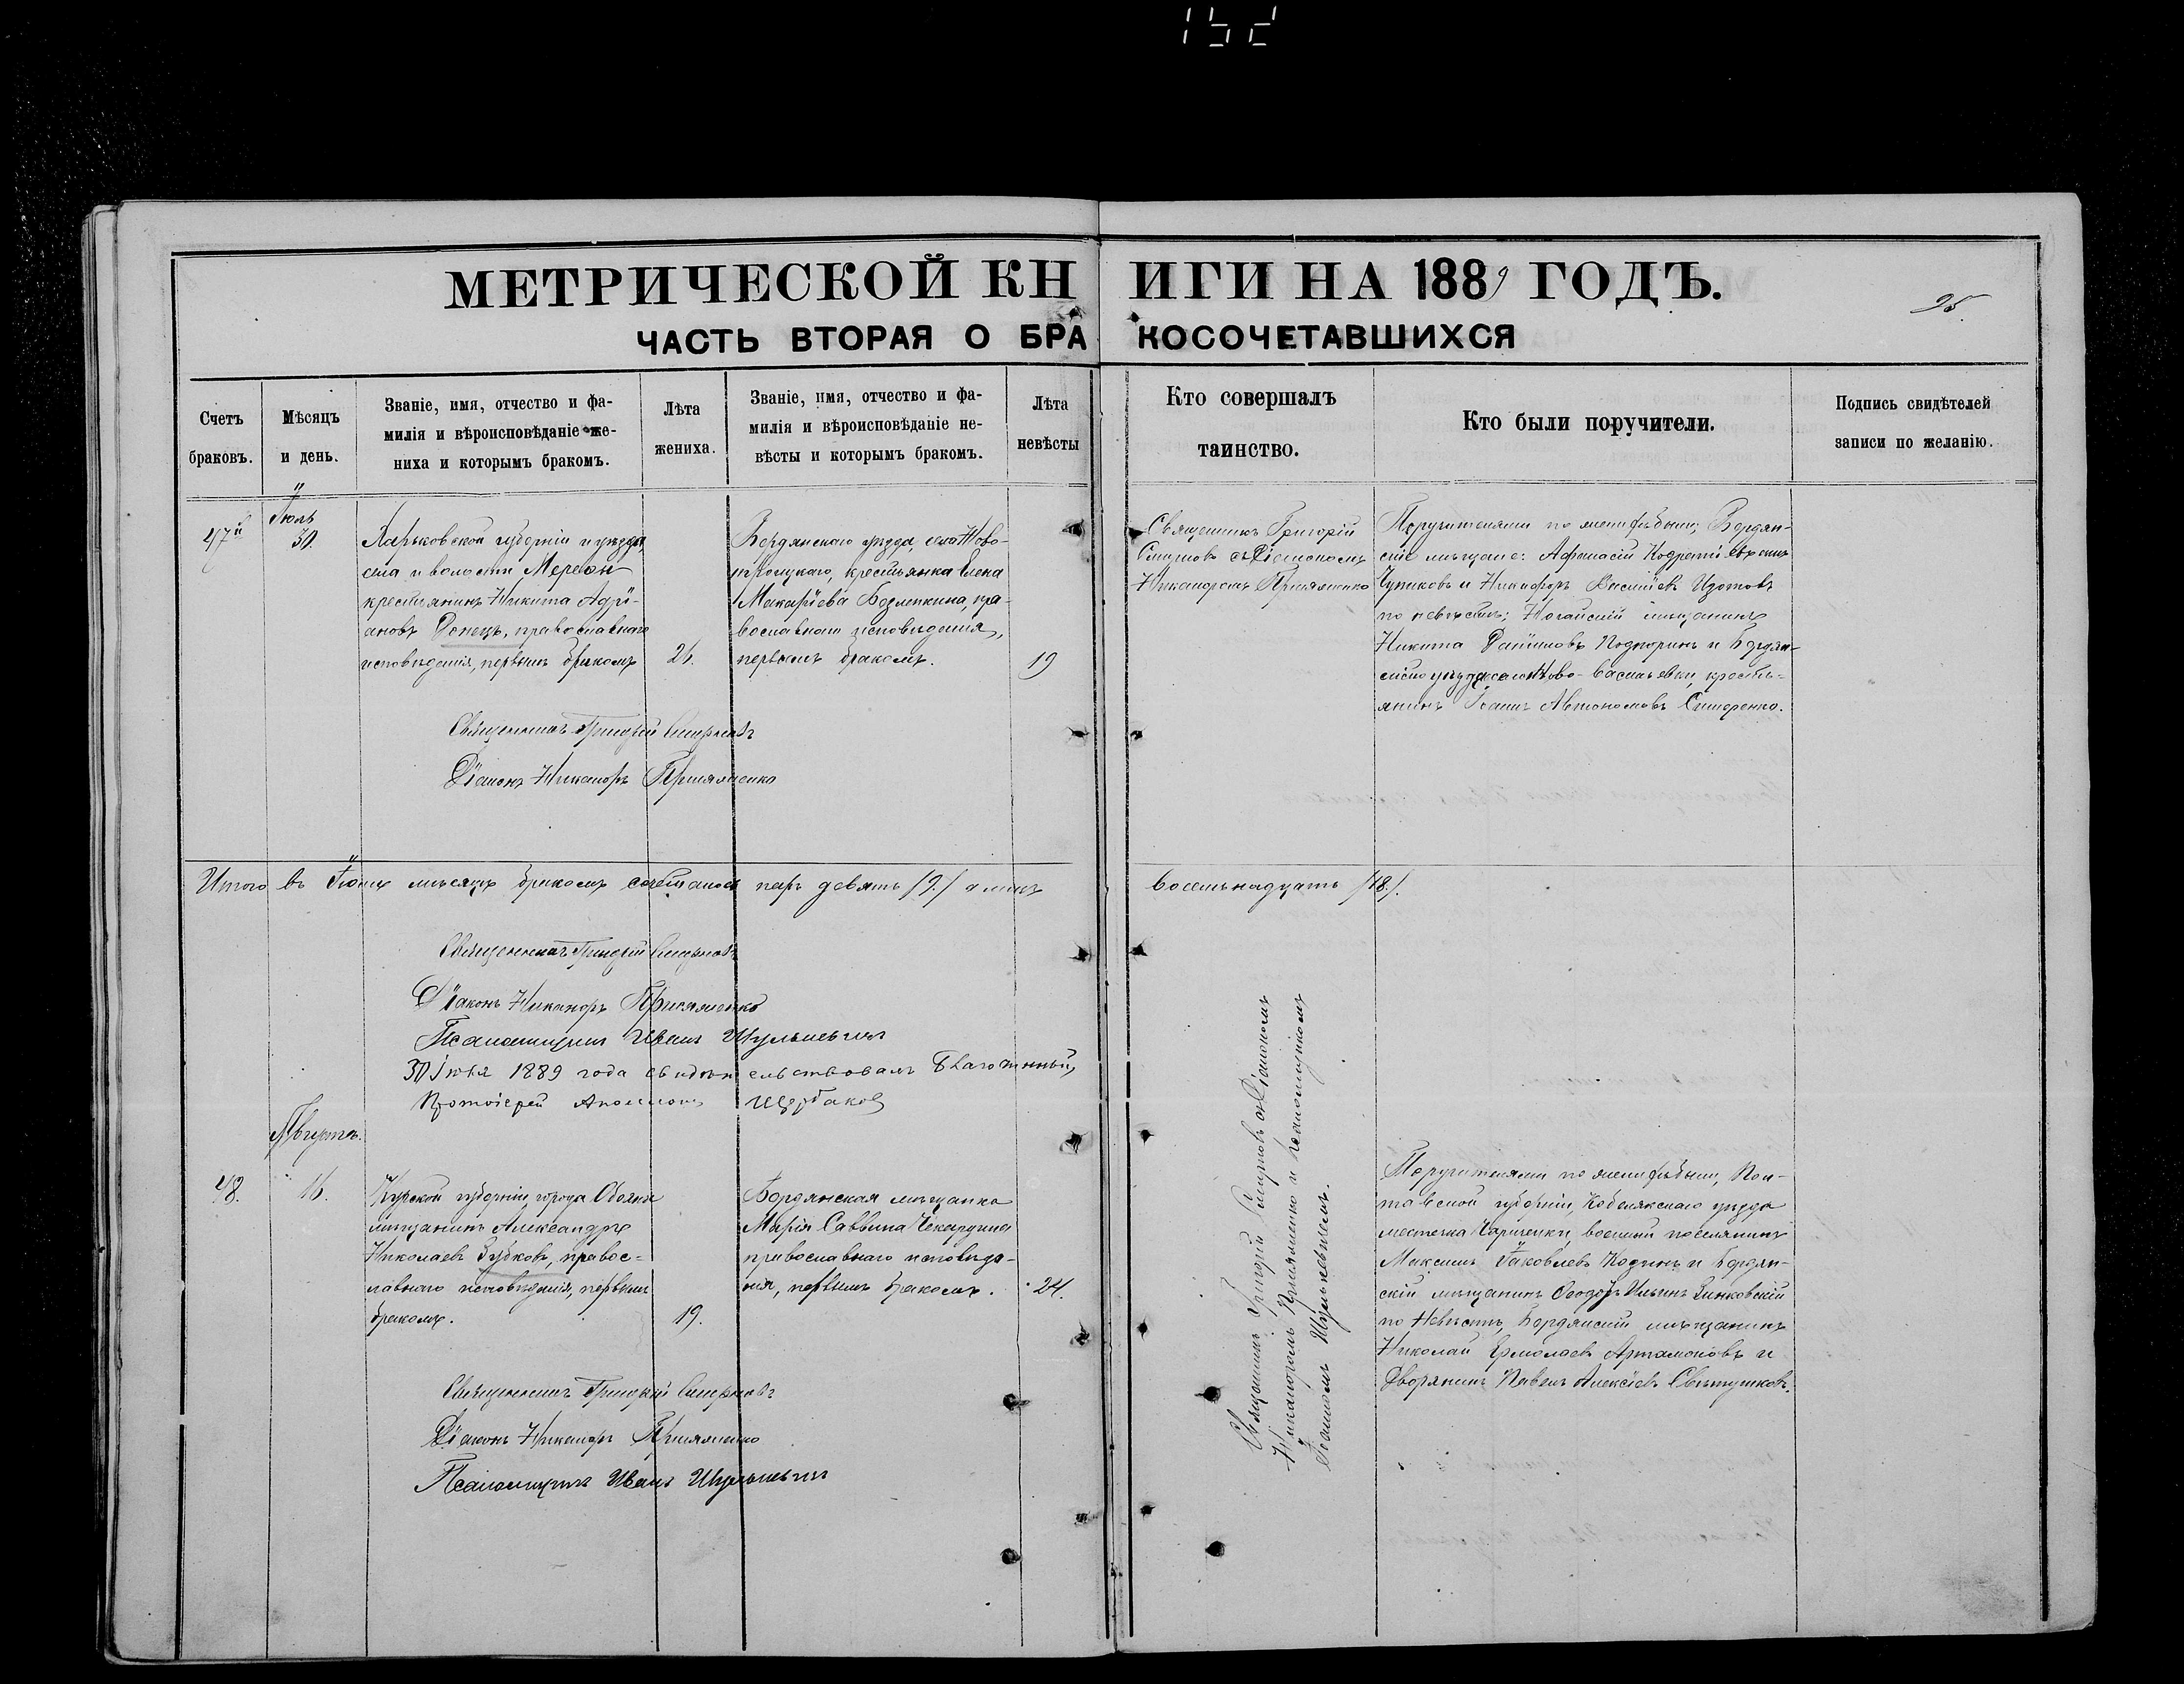 152
МЕТРИЧЕСКОЙ КНИГИ НА 1889 ГОДЪ.
25.
ЧАСТЬ ВТОРАЯ О БРАКОСОЧЕТАВШИХСЯ
Счетъ
браковъ.
Мѣсяцъ
и день.
Званіе, имя, отчество и фа-
милія и вѣроисповѣданіе же-
ниха и которымъ бракомъ.
Лѣта
жениха.
Званіе, имя, отчество и фа-
милія и вѣроисповѣданіе не-
вѣсты и которымъ бракомъ.
Лѣта
невѣсты
Кто совершалъ
таинство.
Кто были поручители.
Подпись свидѣтелей
записи по желанію.
47й
Іюль
30.
Харьковской губерніи и уѣзда,
села и волости Мерефи
крестьянинъ Никита Адрі-
ановъ Донецъ, православнаго
исповѣданія, первымъ бракомъ
26.
Бердянскаго уѣзда, села Ново-
троицкаго, крестьянка Елена
Макаріева Безлепкина, пра-
вославнаго исповѣданія,
первымъ бракомъ.
19
Священникъ Григорій
Смирновъ съ Діакономъ
Никаноромъ Присяженко
Поручителями по женихѣ были; Бердян-
скіе мѣщане: Афанасій
Чупиковъ и Никифоръ Васильевъ Изотовъ
по невѣстѣ; Ногайскій мѣщанинъ
Никита Подпоринъ и Бердян-
скаго уѣзда села Ново-Васильевки, кресть-
янинъ Іоаннъ Автономовъ
Священникъ Григорій Смирновъ
Діаконъ Никаноръ Присяженко
Итого въ Іюлѣ мѣсяцѣ бракомъ сочеталось паръ девять /9./ а лицъ восемьнадцать /18./.
Священникъ Григорій Смирновъ
Діаконъ Никаноръ Присяженко
Псаломщикъ Иванъ Шулькевичъ
30 1889 года свидѣтельствовалъ Благочинный,
Протоіерей Щербаковъ
Августъ.
48.
16.
Курской губерніи, города Обояни
мѣщанинъ Александръ
Николаевъ Зубковъ, правос-
лавнаго исповѣданія, первымъ
бракомъ.
19.
Бердянская мѣщанка
Марія Саввина
православнаго исповѣда-
нія, первымъ бракомъ.
24.
Священникъ Григорій Смирновъ съ Діакономъ
Никаноромъ Присяженко и Псаломщикомъ
Іоанномъ Шулькевичемъ.
Поручителями по женихѣ были, Пол-
тавской губерніи, Кобелякскаго уѣзда
местечка военный поселянинъ
Максимъ Яковлевъ и Бердян-
скій мѣщанинъ Ѳеодоръ Ильинъ Зинковскій
по Невѣстѣ, Бердянскій мѣщанинъ
Николай Ермолаевъ Артамоновъ и
Дворянинъ Павелъ Алексіевъ
Священникъ Григорій Смирновъ
Діаконъ Никаноръ Присяженко
Псаломщикъ Иванъ Шулькевичъ